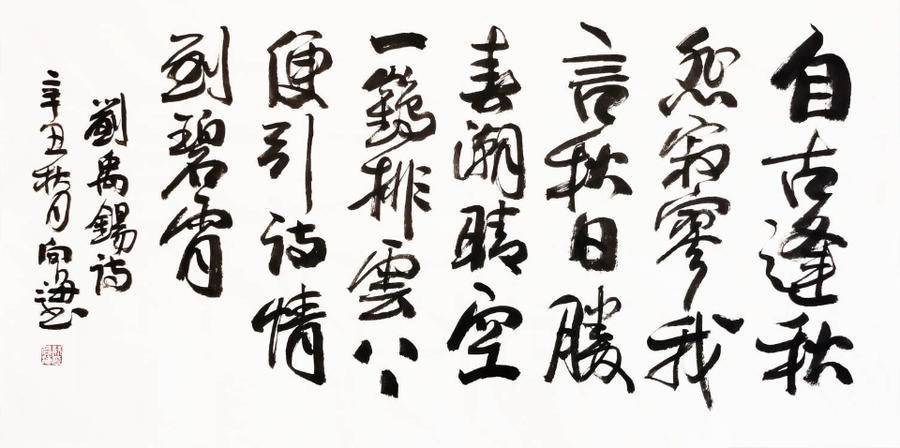 自古逢秋
怨寂寥我
言秋日勝
春潮晴空
一鶴排雲上
便引詩情
到碧霄
劉禹錫詩
辛丑秋月